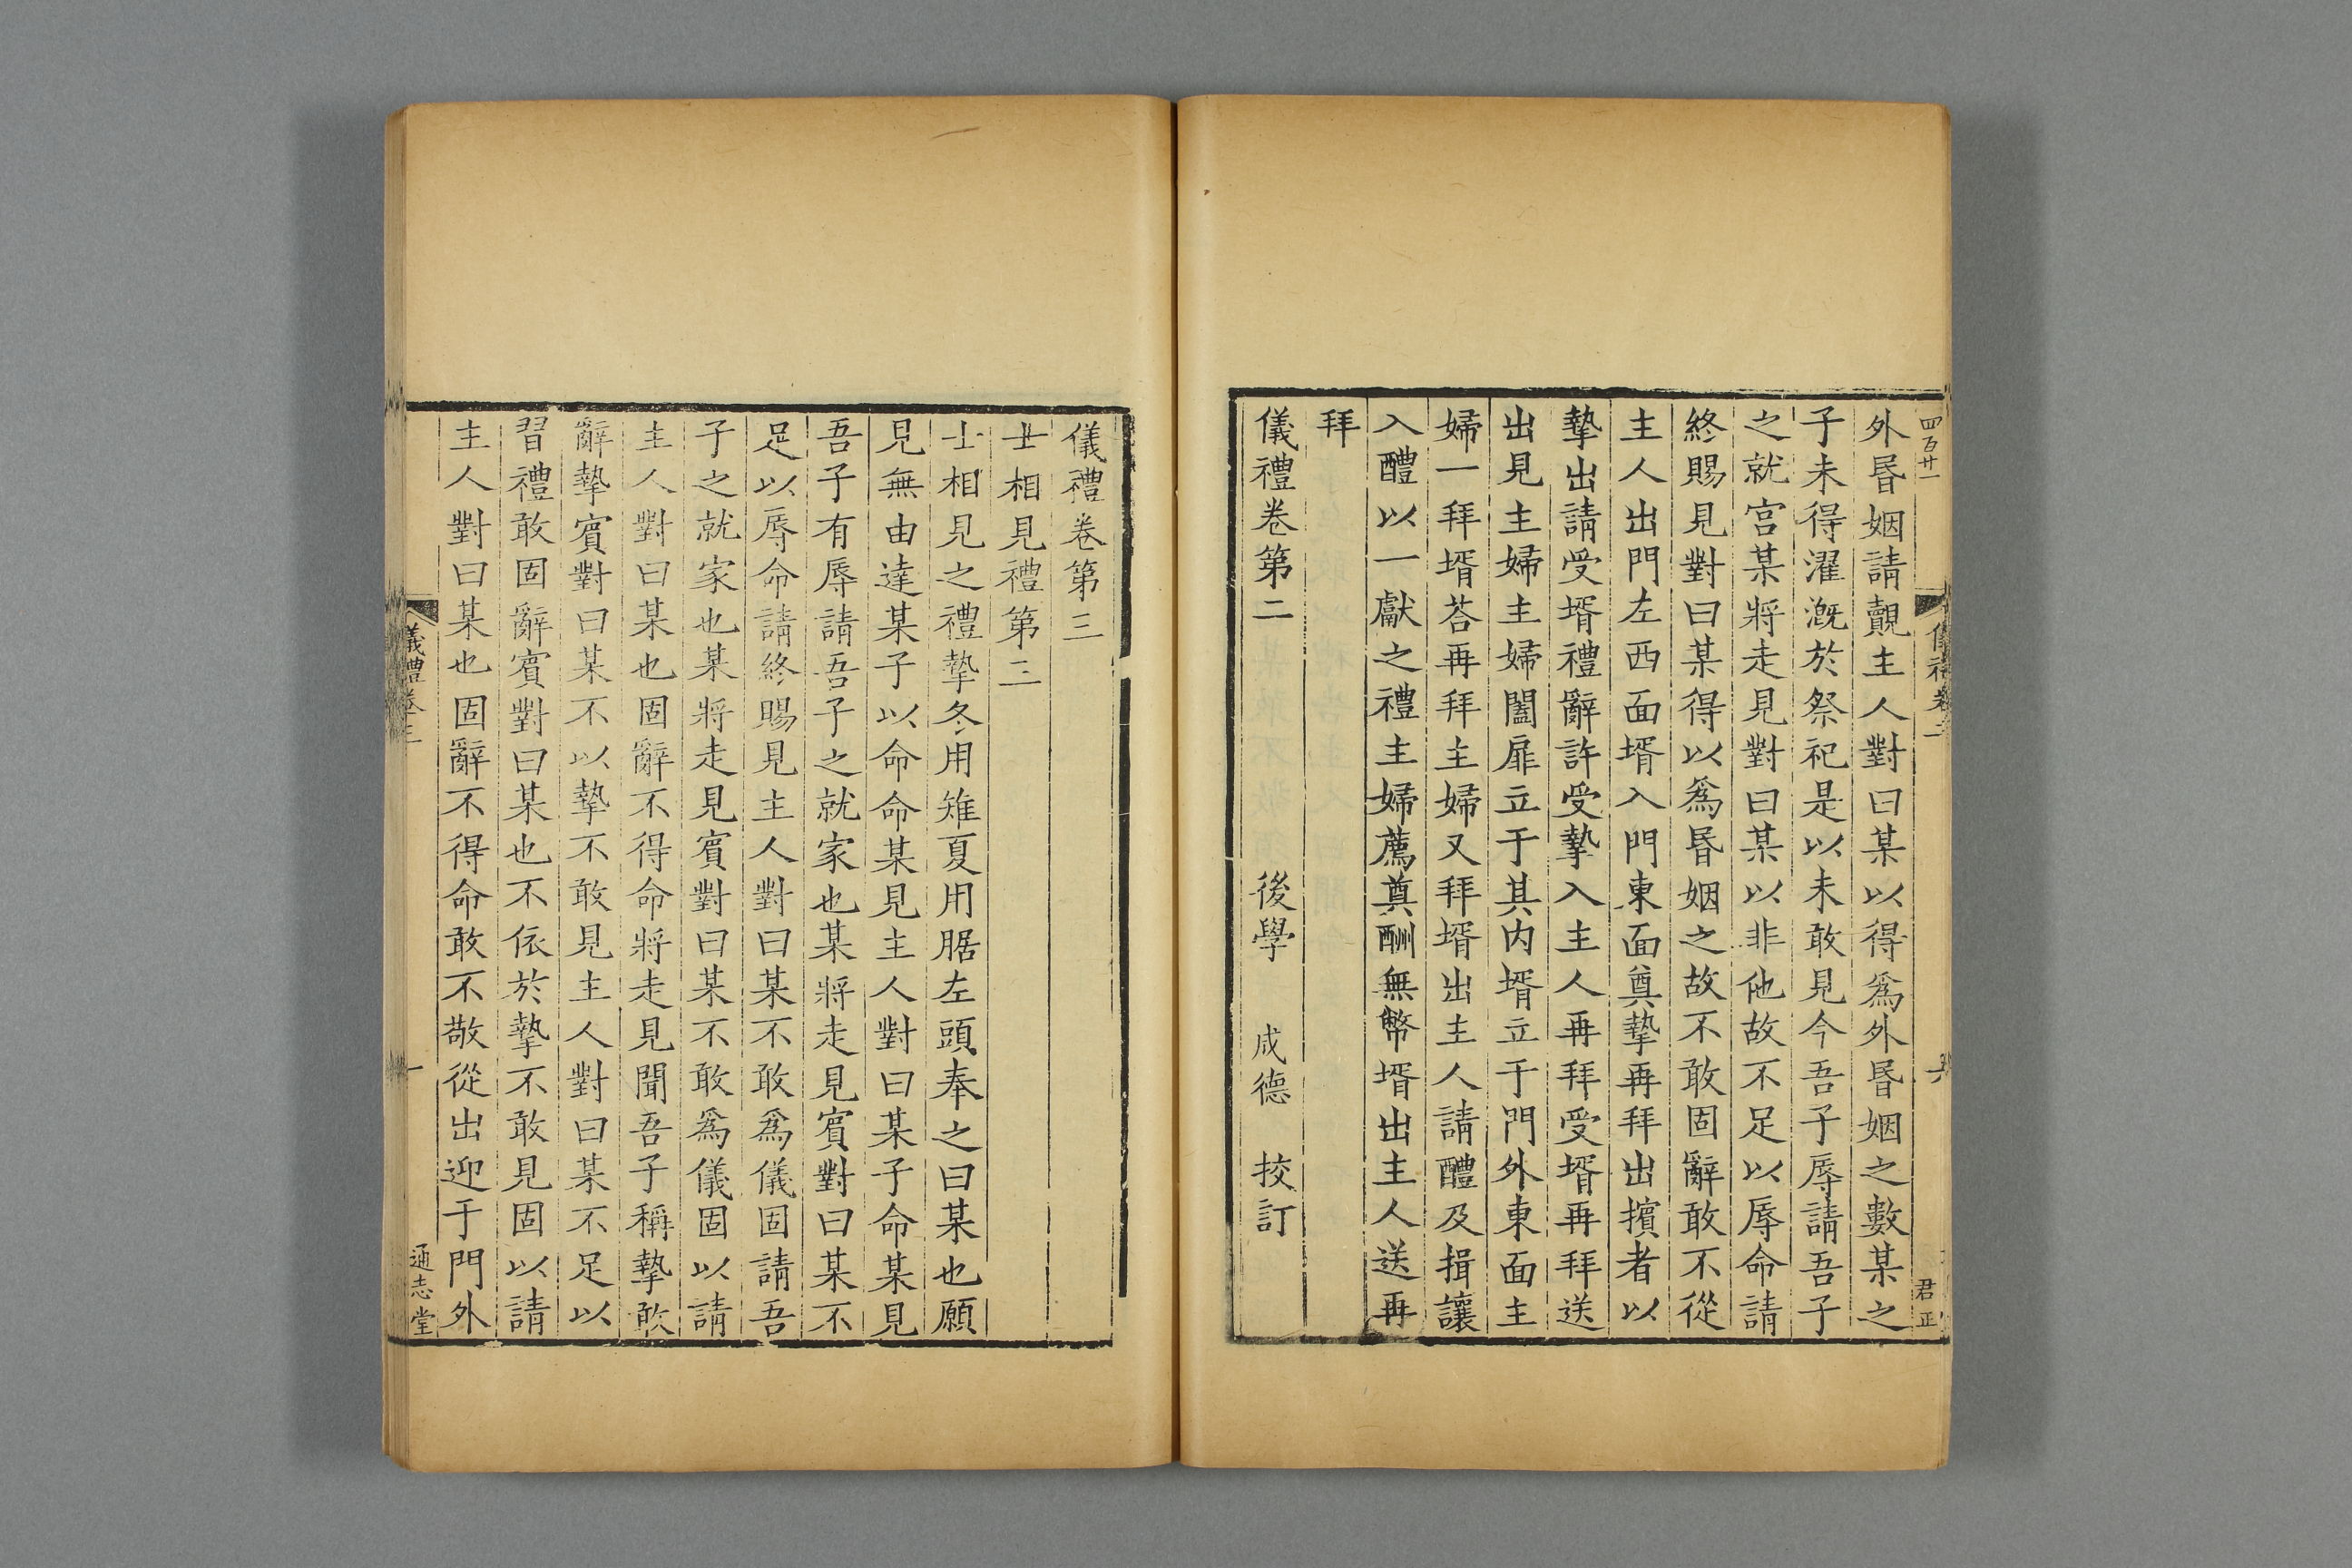 四百廿一
君正
外昬姻請覿主人對曰某以得爲外昬姻之數某之
子未得濯漑於祭祀是以未敢見今吾子辱請吾子
之就宮某將走見對曰某以非他故不足以辱命請
終賜見對曰某得以爲昬姻之故不敢固辭敢不從
主人出門左西面壻入門東面奠摯再拜出擯者以
摯出請受壻禮辭許受摯入主人再拜受壻再拜送
出見主婦主婦闔扉立于其内壻立于門外東面主
婦一拜壻荅再拜主婦又拜壻出主人請醴及揖讓
入醴以一獻之禮主婦薦奠酬無幣壻出主人送再
拜
儀禮卷第二 後學 成德 挍訂
儀禮卷第三
士相見禮第三
士相見之禮摯冬用雉夏用腒左頭奉之曰某也願
見無由達某子以命命某見主人對曰某子命某見
吾子有辱請吾子之就家也某將走見賓對曰某不
足以辱命請終賜見主人對曰某不敢爲儀固請吾
子之就家也某將走見賓對曰某不敢爲儀固以請
主人對曰某也固辭不得命將走見聞吾子稱摯敢
辭摯賓對曰某不以摯不敢見主人對曰某不足以
習禮敢固辭賓對曰某也不依於摯不敢見固以請
主人對曰某也固辭不得命敢不敬從出迎于門外
儀禮卷三 一 通志堂